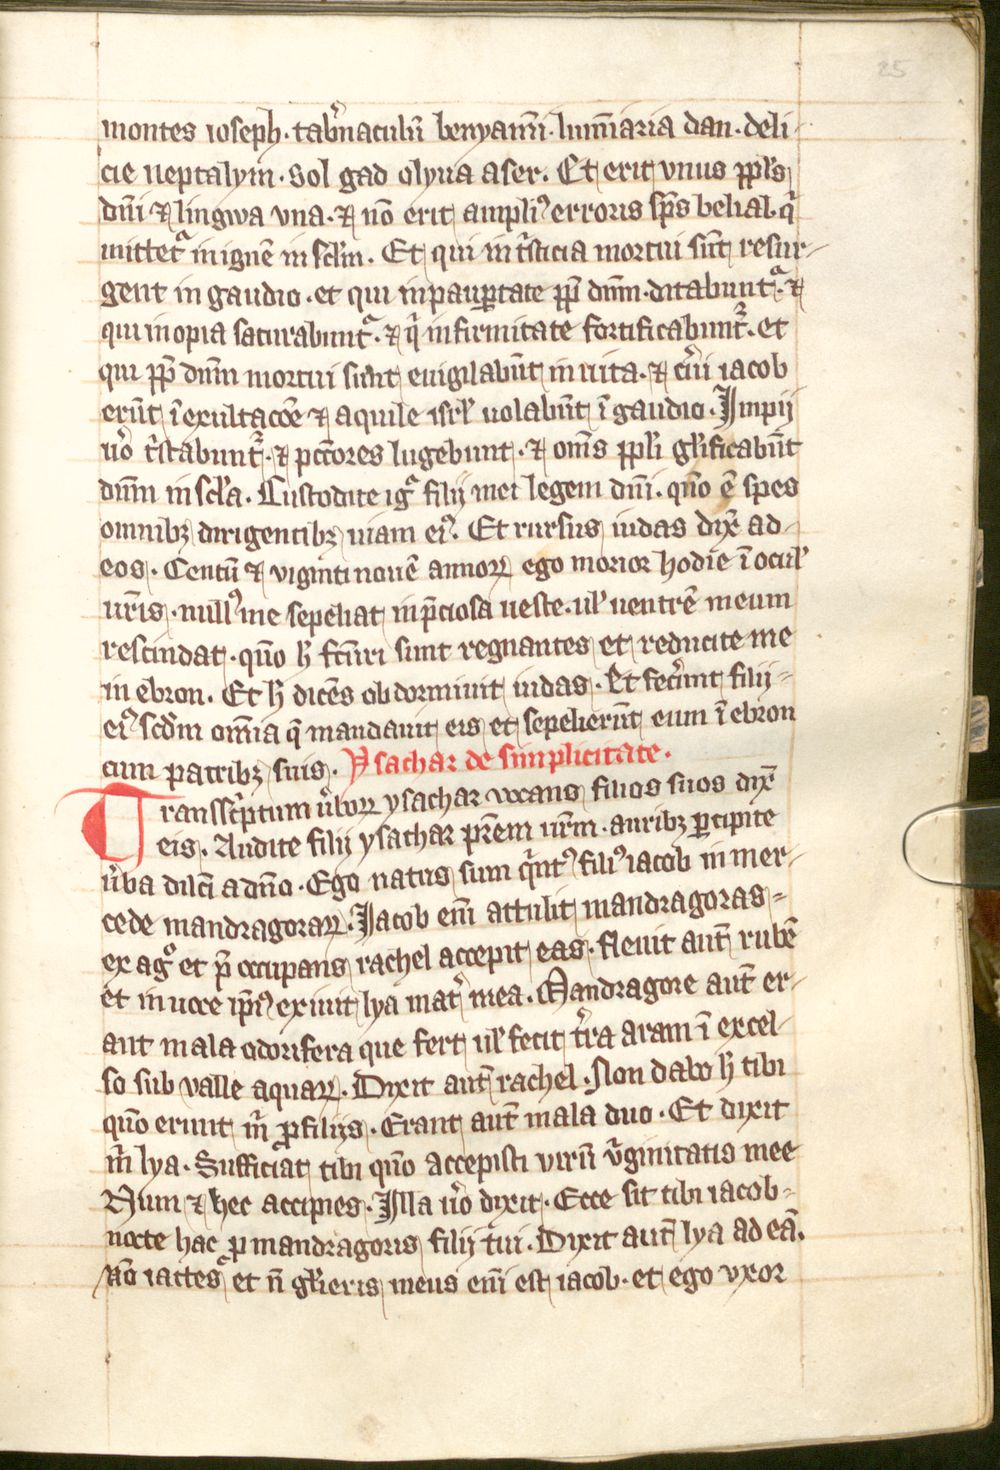 25
montes ioseph · tab̾naculū benyamī · lumīaria dan · deli-
cie neptalym · Sol gad olyua aser . Et erit vnus ppl̄s
dn̄i ⁊ lingwa vna · ⁊ nō erit ampliꝰ erroris sp̄s belial · qͣ
mittet᷑ in ignē in scl̄m . Et qui in tͥsticia mortui sūt resur-
gent in gaudio · et qui in paup̱tate pp̄ dn̄m · ditabunt᷑ · ⁊
qui inopia saturabunt᷑ · ⁊ qͥ infirmitate fortificabunt᷑ · et
qui pp̄ dn̄m mortui sunt euigilabūt in uita · ⁊ c̾ui iacob
erūt ī exultacōe ⁊ aquile isrl̄ uolabūt ī gaudio · Impij
ūo tͥstabunt᷑ · ⁊ pct̄ores lugebunt · ⁊ om̄s ppl̄i gl̄ificabūt
dn̄m in scl̄a . Custodite igͣ filij mei legem dn̄i · qn̄o ē spes
omnibꝫ dirigentibꝫ uiam eiꝰ . Et rursus iudas dix̄ ad-
eos . Centū ⁊ viginti nouē annoꝝ ego morior hodie ī ocul̄
ur̄is · nullꝰ me sepeliat in p̄ciosa ueste · ul̄ uentrē meum
rescindat · qn̄o h̄ fct̄uri sunt regnantes et reducite me
in ebron . Et h̄ dicēs obdormiuit iudas . Et fec̾unt filij-
eiꝰ scd̄m om̄ia q̄ mandauit eis et sepelierūt eum ī ebron
cum patribꝫ suis . Ysachar de simplicitate .
Transsc̾ptum ūboꝝ ysachar vocans filios suos dix̄
eis . Audite filij ysachar pr̄em ur̄m · auribꝫ p̱cipite
ūba dilc̄i a dn̄o · Ego natus sum qͥntꝰ filiꝰ iacob in mer-
cede mandragoraꝝ . Jacob em̄ attulit mandragoras-
ex agͦ et p̄occupans rachel accepit eas · fleuit aut̄ rubē
et in uoce ip̄iꝰ exiuit lya mat̾ mea . Mandragore aut̄ er-
ant mala odorifera que fert ul̄ fecit t̾ra aram ī excel-
so sub valle aquaꝝ . Dixit aut̄ rachel . Non dabo h̄ tibi
qn̄o erunt m̄ ꝓ filijs . Erant aut̄ mala duo · Et dixit
m̄ lya . Sufficiat tibi qn̄o accepisti virū v̾ginitatis mee
Num ⁊ hec accipies . Illa ūo dixit . Ecce sit tibi iacob-
nocte hac ꝓ mandragoris filij tui . Dixit aut̄ lya ad eā .
Nō iactes᷑ et n̄ gl̄ieris meus em̄ est iacob · et ego vxor